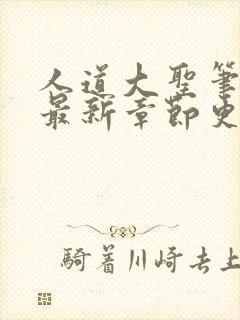 人道大聖筆
最新章節史
騎着川崎去上